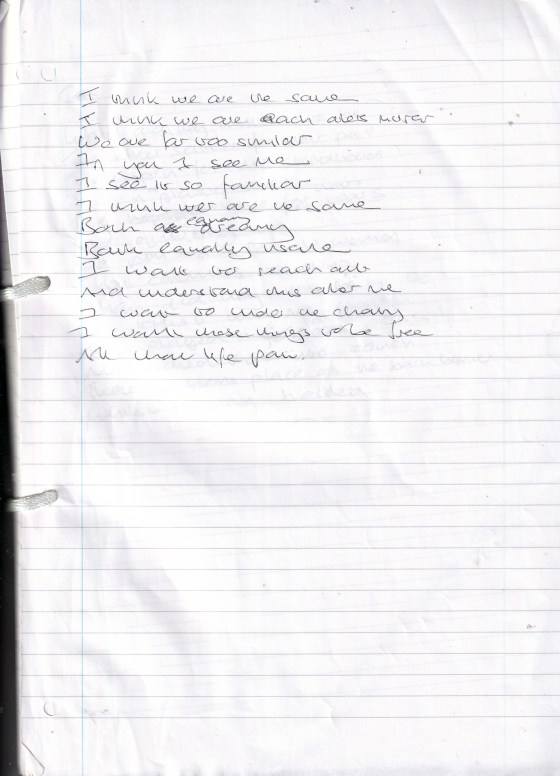 I think we are the same
I think we are each others mirror
We are far too similar
In you I see me
I see it so familiar
I think wer are the same
Both equally dreamy
Both equally insane
I want to reach out
And understand this other me
I want to undo the chains
I want these things to be free